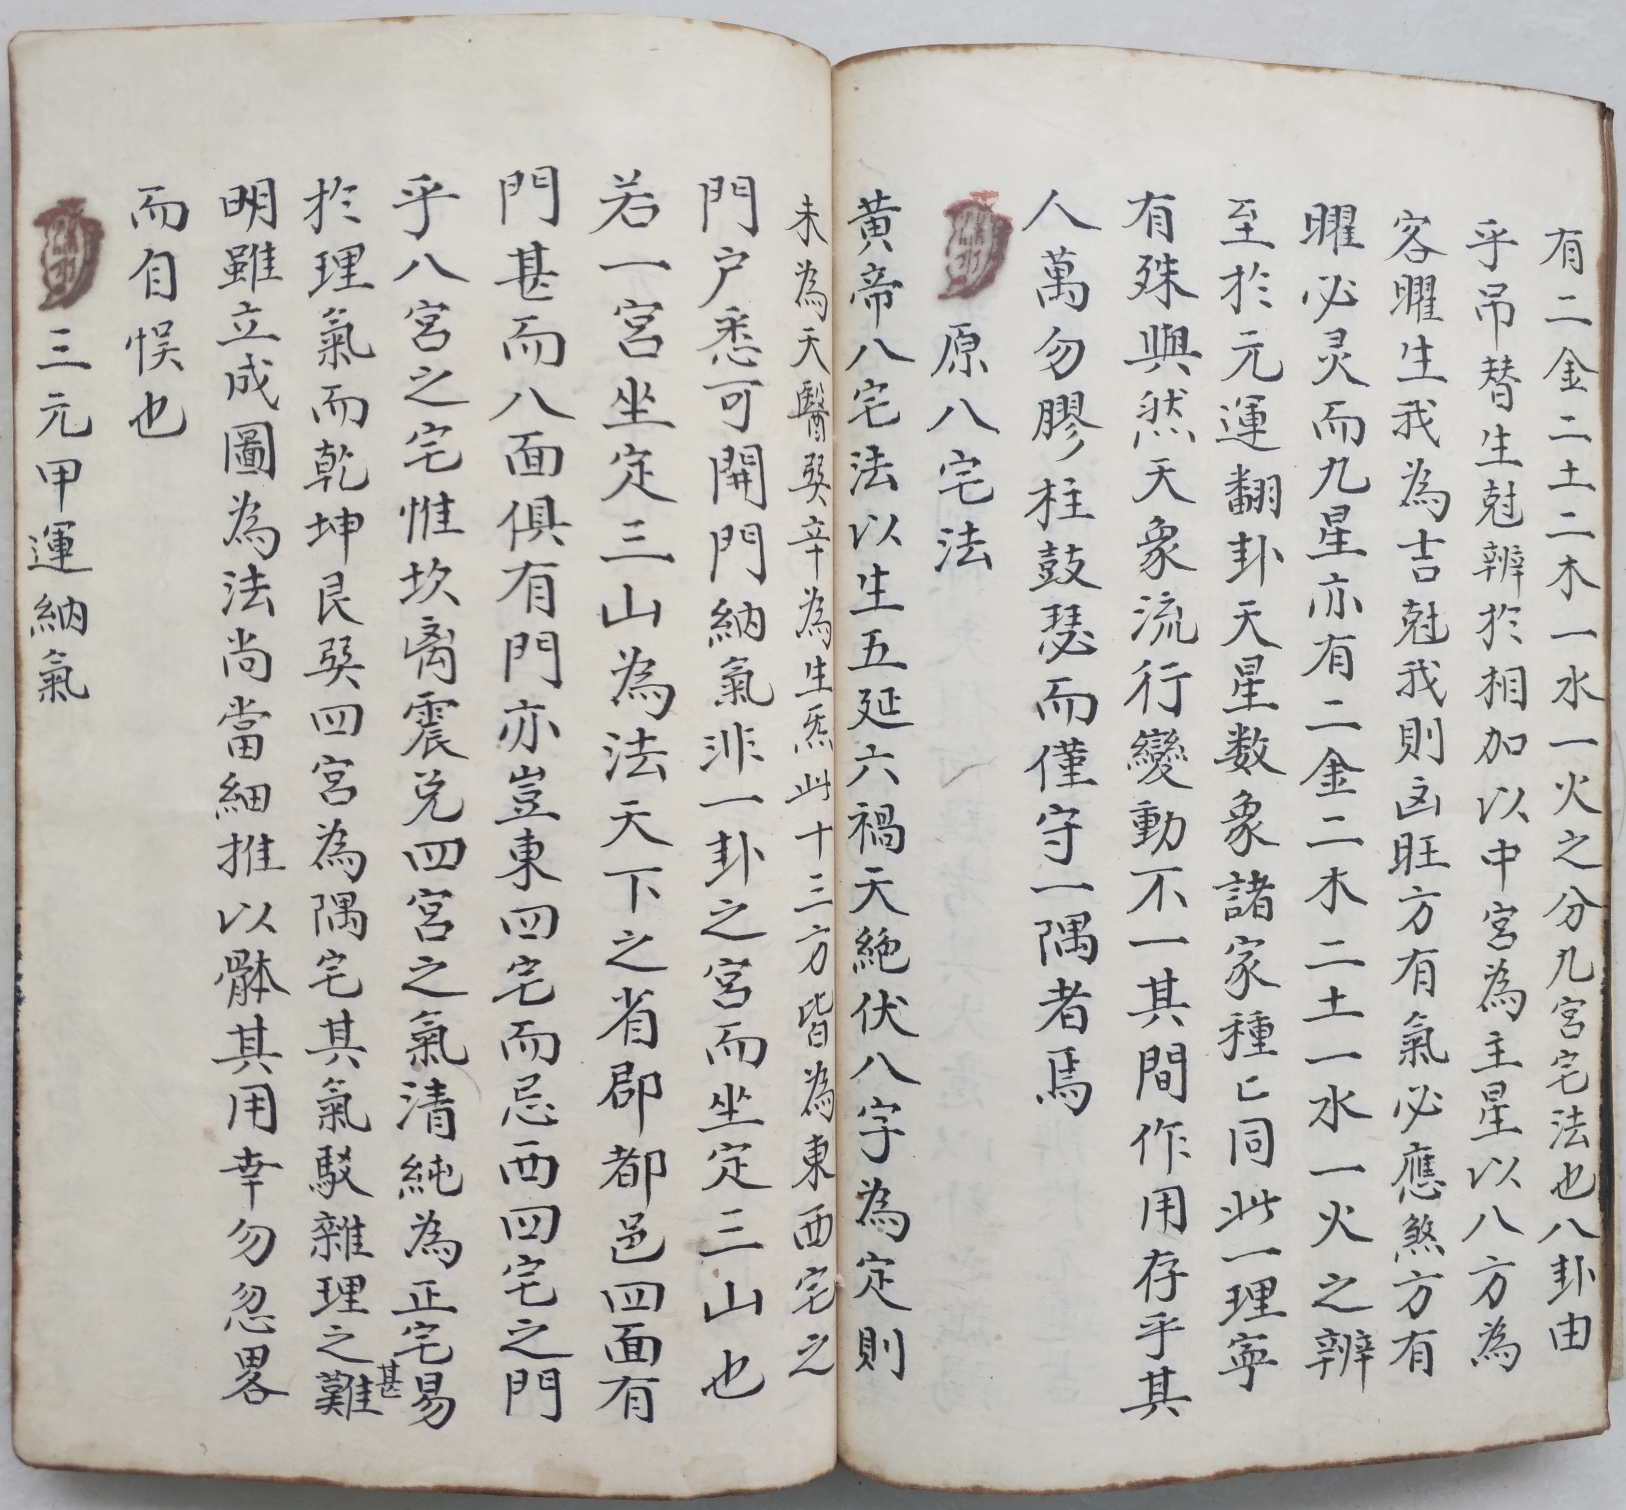 有二金二土二木一水一火之分九宮宅法也八卦由
乎吊替生尅辨於相加以中宮為主星以八方為
客曜生我為吉尅我則凶旺方有氣必應煞方有
曜必灵而九星亦有二金二木二土一水一火之辨
至於元運翻卦天星数象諸家種匕同此一理寧
有殊與然天象流行變動不一其間作用存乎其
人萬勿膠柱鼓瑟而僅守一隅者焉
原八宅法
黃帝八宅法以生五延六禍天絶伏八字為定則
未為天醫癸辛為生炁此十三方皆為東西宅之
門户悉可開門納氣非一卦之宮而坐定三山也
若一宮坐定三山為法天下之省郡都邑四面有
門甚而八面俱有門亦豈東四宅而忌西四宅之門
乎八宮之宅惟坎离震兑四宮之氣清純為正宅易
於理氣而乾坤艮巽四宮為隅宅其氣駁雜理之甚難
明雖立成圖為法尚當細推以骵其用幸勿忽畧
而自悞也
三元甲運納氣